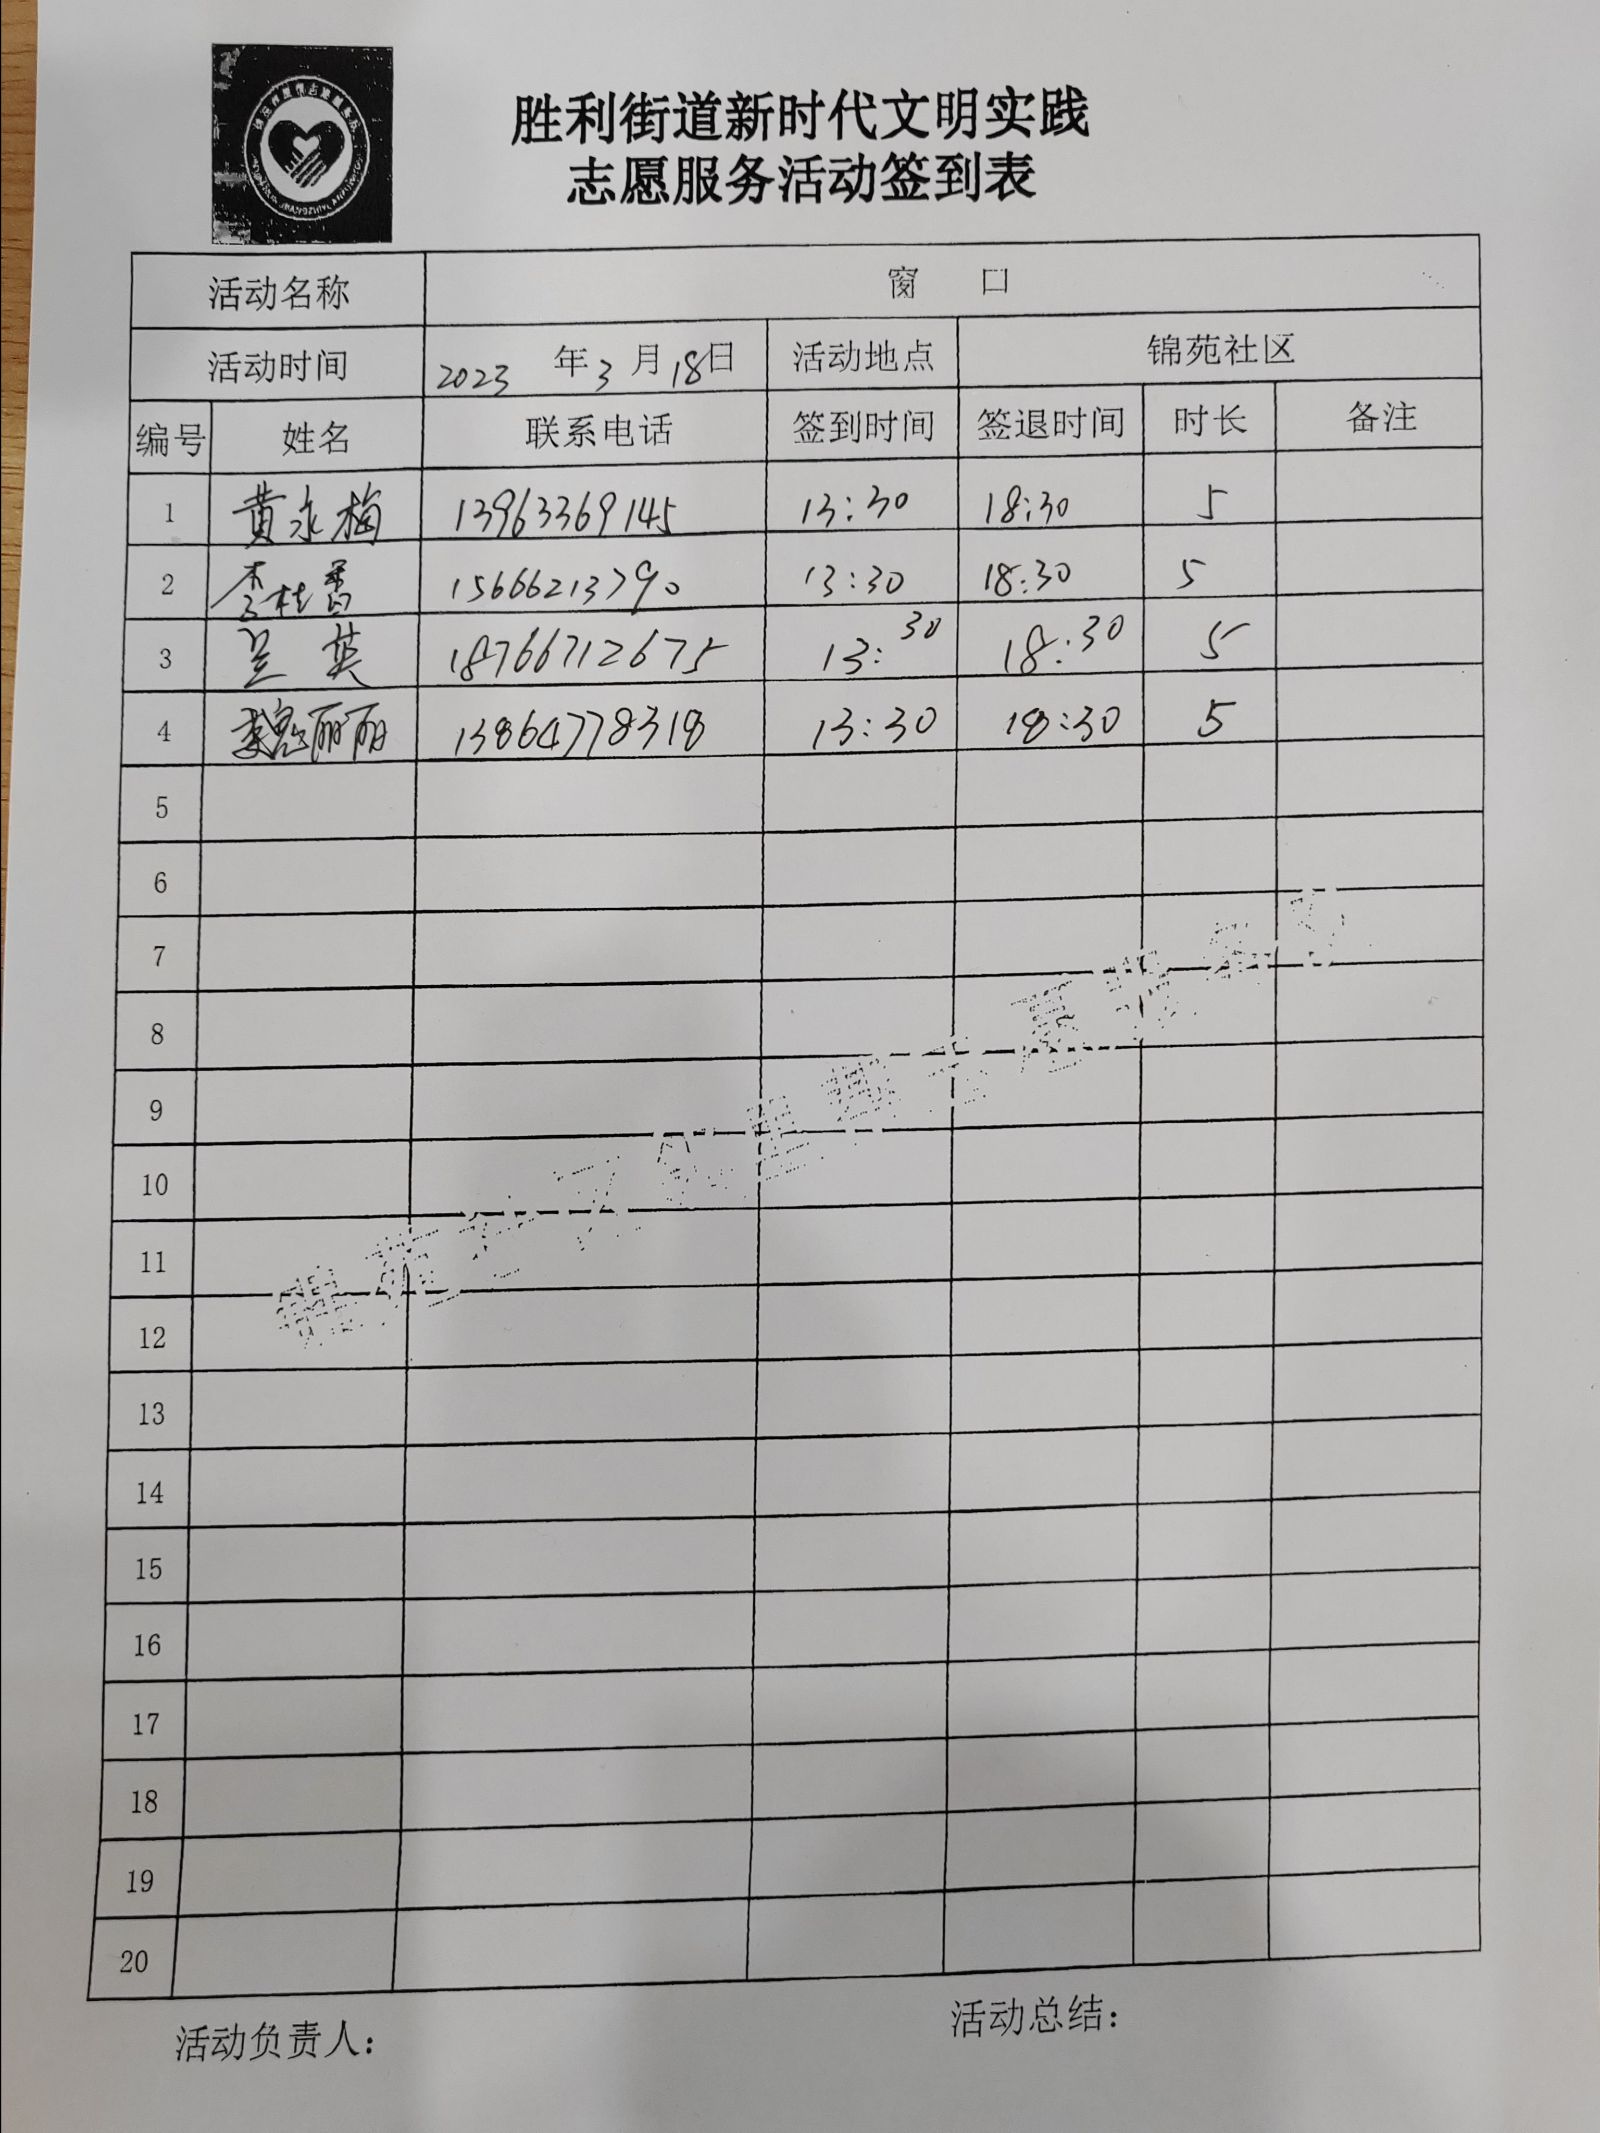 胜利街道新时代文明实践
志愿服务活动签到表
活动名称 窗 口
活动时间 2023 年 3 月 18 日 活动地点 锦苑社区
编号 姓名 联系电话 签到时间 签退时间 时长 备注
1 黄永梅 13963369145 13:30 18:30 5
2 李桂香 15666213790 13:30 18:30 5
3 兰英 18766712675 13:30 18:30 5
4 魏丽丽 13864778318 13:30 18:30 5
5
6
7
8
9
10
11
12
13
14
15
16
17
18
19
20
活动负责人： 活动总结：